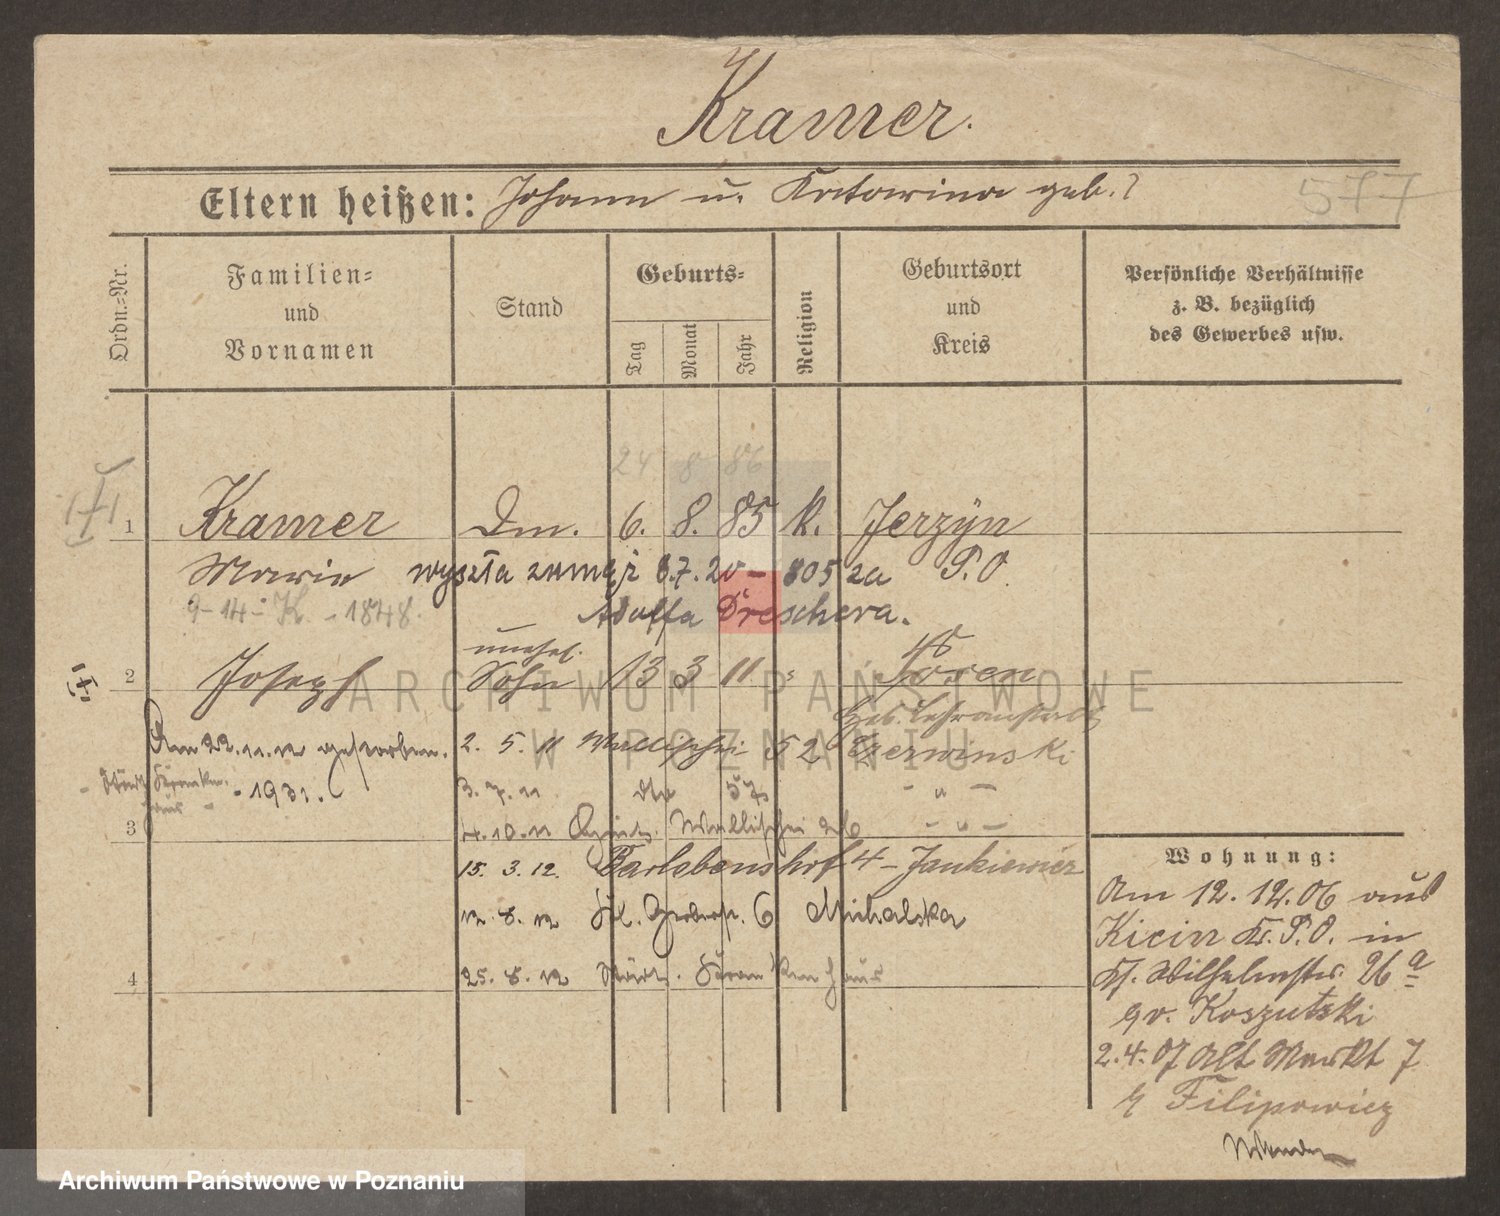 Kramer.
Eltern heißen: Johann u. Katarina geb. ?
577
Ordn.=Nr.
Familien=
und
Vornamen
Stand
Geburts=
Tag
Monat
Jahr
Religion
Geburtsort
und
Kreis
Persönliche Verhältnisse
z. B. bezüglich
des Gewerbes usw.
24 8 86
1 Kramer Dm. 6. 8. 85 K. Jerzyn
Maria wyszła zamąż 8.7.20 – 805 za P.O.
9-14- K. - 1848. Adolfa Dreschera.
unehel.
2 Joseph Sohn 13 3 11 Posen
Am 22.11.12 gestorben. 2. 5. 11 Wallischei 52 Czerwinski
- 1931. 3. 7. 11 dto 57 - " -
3 4. 10. 11 Wallischei - " -
15. 3. 12. Karlebenshof 4 - Jankiewicz
12. 8. 12 Kl. Gerberstr. 6 Michalska
4 25. 8. 12 Städt. Krankenhaus
Wohnung:
Am 12. 12. 06 aus
Kicin Kr. P.O. in
Wilhelmstr. 26 a
Koszutski
2. 4. 07 Alt Markt 7
Filipowicz
ARCHIWUM PAŃSTWOWE
W POZNANIU
Archiwum Państwowe w Poznaniu